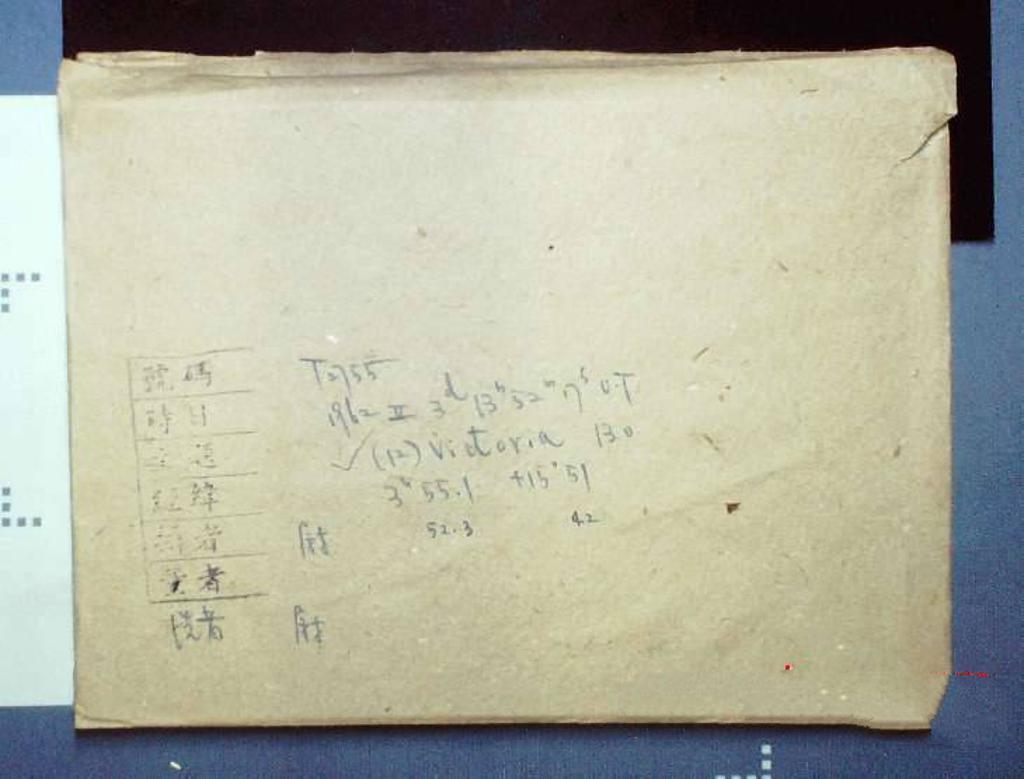 號碼 T2755
時日 1962 II 3ᵈ 13ʰ52ᵐ17ˢ U.T
✓ (12) Victoria 130
經緯 3ʰ55.1 +15°51
52.3 42
者
者
者